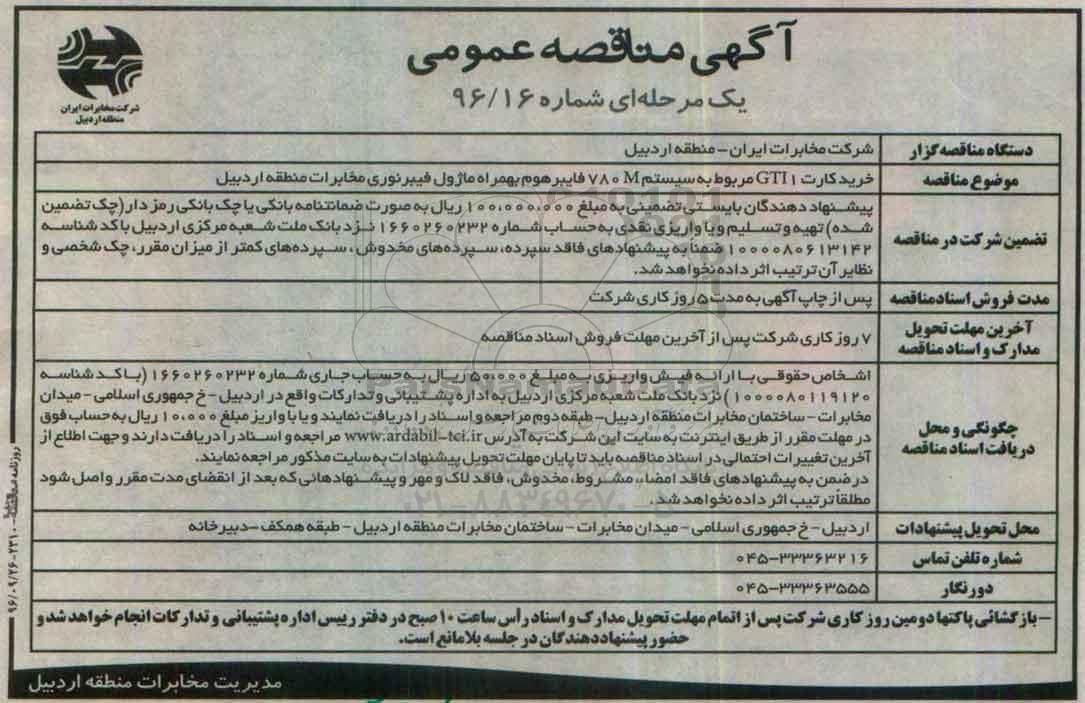 آگهی مناقصه عمومی
یک مرحله‌ای شماره ۹۶/۱۶
شرکت مخابرات ایران
منطقه اردبیل
دستگاه مناقصه گزار
شرکت مخابرات ایران - منطقه اردبیل
موضوع مناقصه
خرید کارت GTI۱ مربوط به سیستم ۷۸۰ M فایبرهوم بهمراه ماژول فیبر نوری مخابرات منطقه اردبیل
تضمین شرکت در مناقصه
پیشنهاد دهندگان بایستی تضمینی به مبلغ ۱۰۰،۰۰۰،۰۰۰ ریال به صورت ضمانتنامه بانکی یا چک بانکی رمز دار (چک تضمین
شده) تهیه و تسلیم و یا واریزی نقدی به حساب شماره ۱۶۶۰۲۶۰۲۳۲ نزد بانک ملت شعبه مرکزی اردبیل با کد شناسه
۱۰۰۰۰۸۰۶۱۳۱۴۲ ضمناً به پیشنهادهای فاقد سپرده، سپرده‌های مخدوش، سپرده‌های کمتر از میزان مقرر، چک شخصی و
نظایر آن ترتیب اثر داده نخواهد شد.
مدت فروش اسناد مناقصه
پس از چاپ آگهی به مدت ۵ روز کاری شرکت
آخرین مهلت تحویل
مدارک و اسناد مناقصه
۷ روز کاری شرکت پس از آخرین مهلت فروش اسناد مناقصه
چگونگی و محل
دریافت اسناد مناقصه
اشخاص حقوقی با ارائه فیش واریزی به مبلغ ۵۰،۰۰۰ ریال به حساب جاری شماره ۱۶۶۰۲۶۰۲۳۲ (با کد شناسه
۱۰۰۰۰۸۰۱۱۹۱۲۰) نزد بانک ملت شعبه مرکزی اردبیل به اداره پشتیبانی و تدارکات واقع در اردبیل - خ جمهوری اسلامی - میدان
مخابرات - ساختمان مخابرات منطقه اردبیل - طبقه دوم مراجعه و اسناد را دریافت نمایند و یا با واریز مبلغ ۱۰،۰۰۰ ریال به حساب فوق
در مهلت مقرر از طریق اینترنت به سایت این شرکت به آدرس www.ardabil-tci.ir مراجعه و اسناد را دریافت دارند و جهت اطلاع از
آخرین تغییرات احتمالی در اسناد مناقصه باید تا پایان مهلت تحویل پیشنهادات به سایت مذکور مراجعه نمایند.
در ضمن به پیشنهادهای فاقد امضاء، مشروط، مخدوش، فاقد لاک و مهر و پیشنهادهائی که بعد از انقضای مدت مقرر واصل شود
مطلقاً ترتیب اثر داده نخواهد شد.
محل تحویل پیشنهادات
اردبیل - خ جمهوری اسلامی - میدان مخابرات - ساختمان مخابرات منطقه اردبیل - طبقه همکف - دبیرخانه
شماره تلفن تماس
۰۴۵-۳۳۳۶۳۲۱۶
دورنگار
۰۴۵-۳۳۳۶۳۵۵۵
- بازگشائی پاکتها دومین روز کاری شرکت پس از اتمام مهلت تحویل مدارک و اسناد رأس ساعت ۱۰ صبح در دفتر رییس اداره پشتیبانی و تدارکات انجام خواهد شد و
حضور پیشنهاددهندگان در جلسه بلامانع است.
مدیریت مخابرات منطقه اردبیل
ParsNamadData
۰۲۱-۸۸۳۴۹۶۷۰-۵